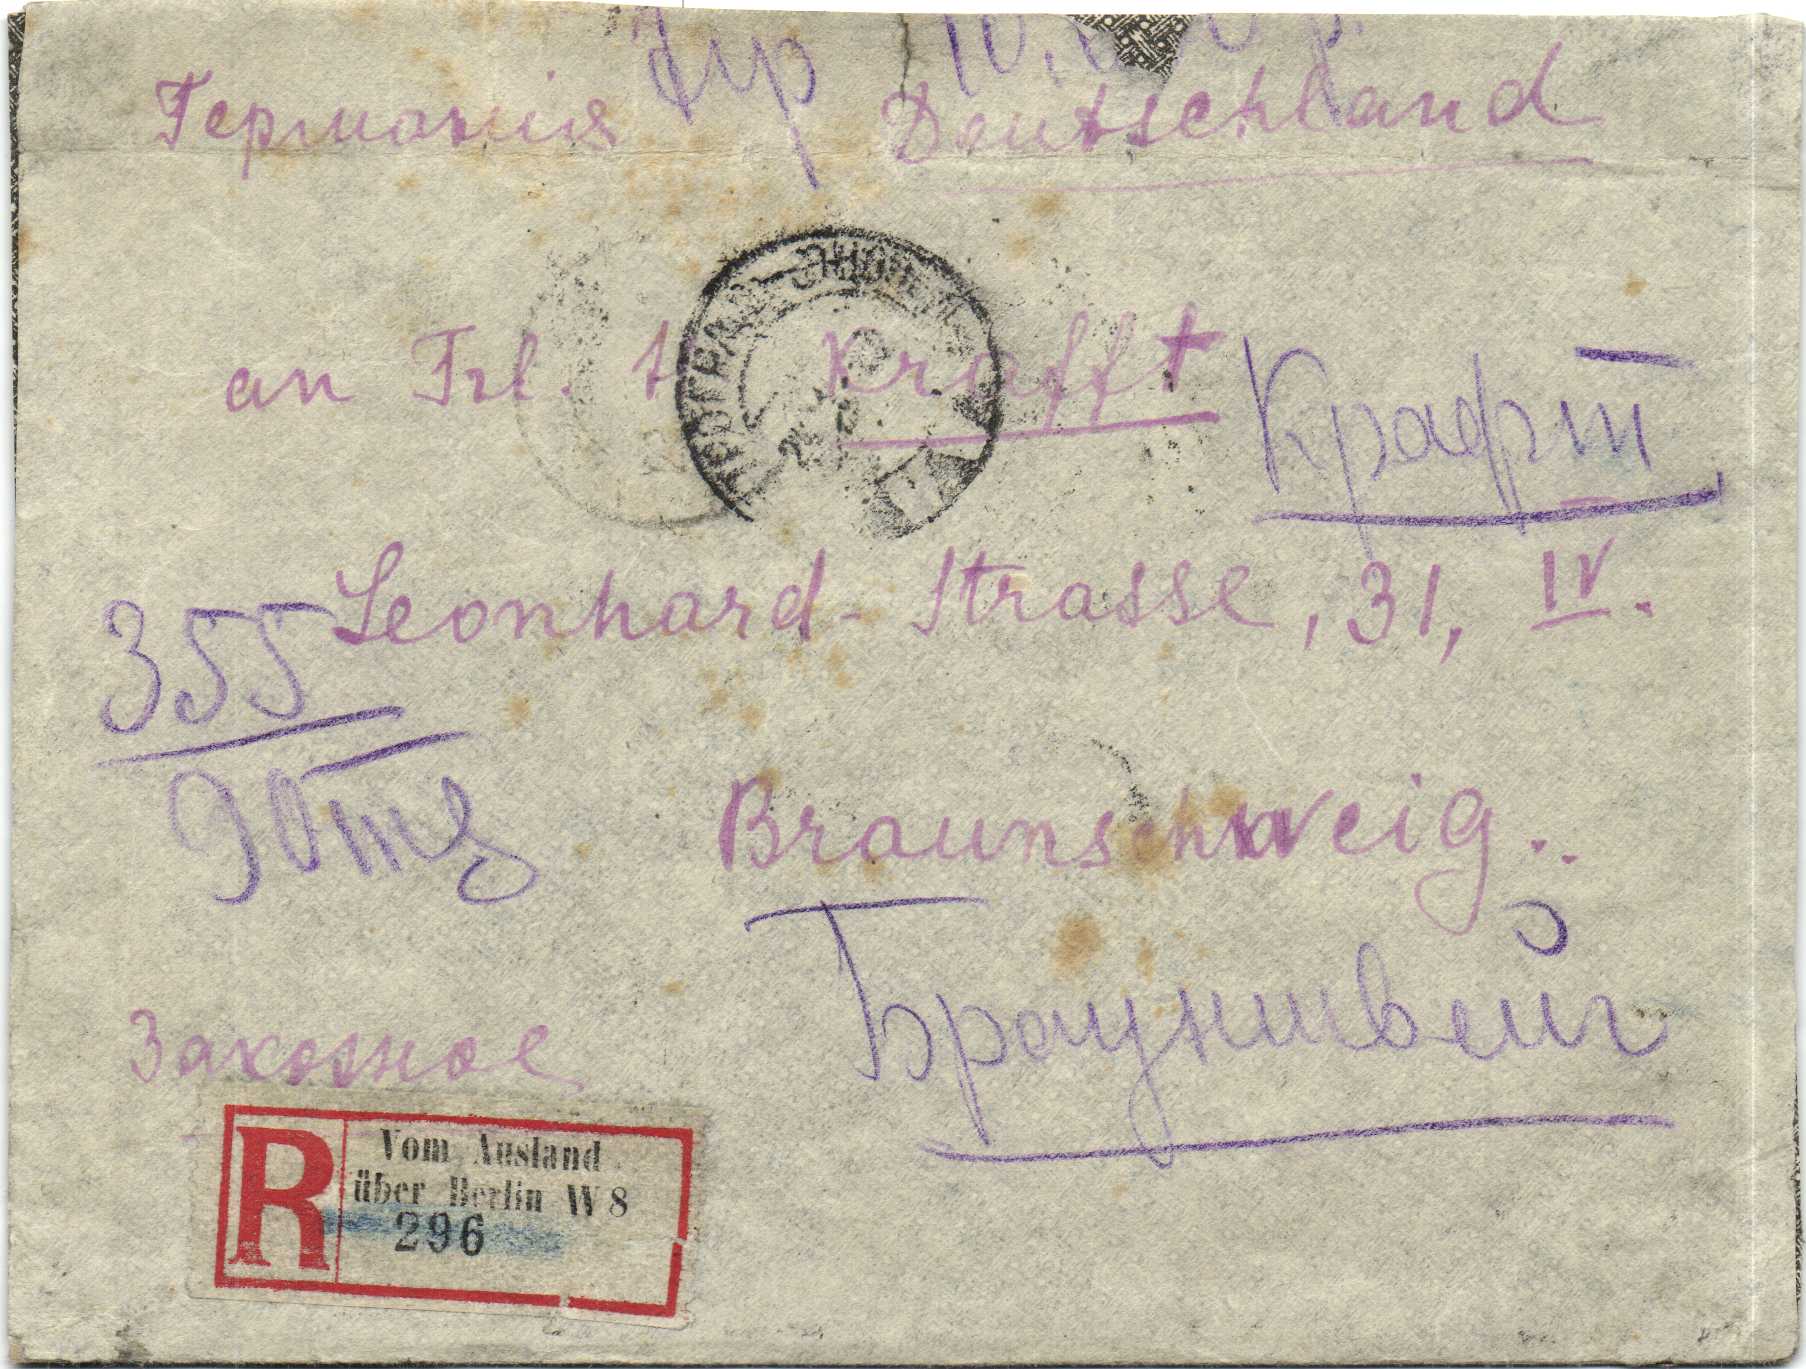 Германія Deutschland
an Frl. Krafft Крафт
Leonhard-Strasse, 31, IV.
355
90
Braunschweig..
Брауншвейг
Заказное
R
Vom Ausland
über Berlin W 8
296